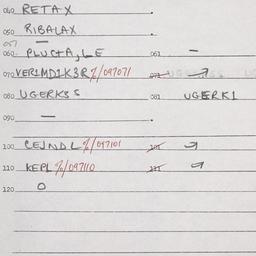 040 RETAX
050 RIBALAX
057 —
060 PLUCTA, LE 061 —
070 VER1MD1K3R %/047071 071
080 UGERK3S 081 UGERK1
090 —
100 CEJNDL %/047101 101
110 KEPL %/047110 111
120 0